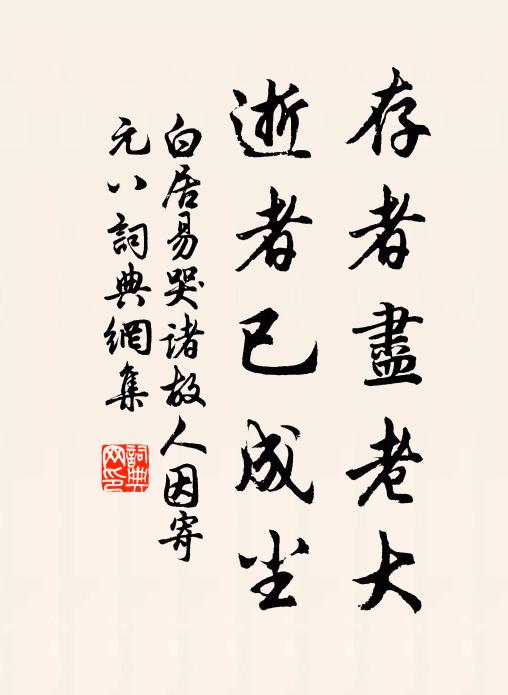 存者盡老大
逝者已成尘
白居易哭诸故人因寄
元八詞典網集
詞典
网印